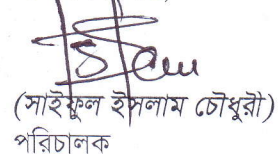 (সাইফুল ইসলাম চৌধুরী)
পরিচালক